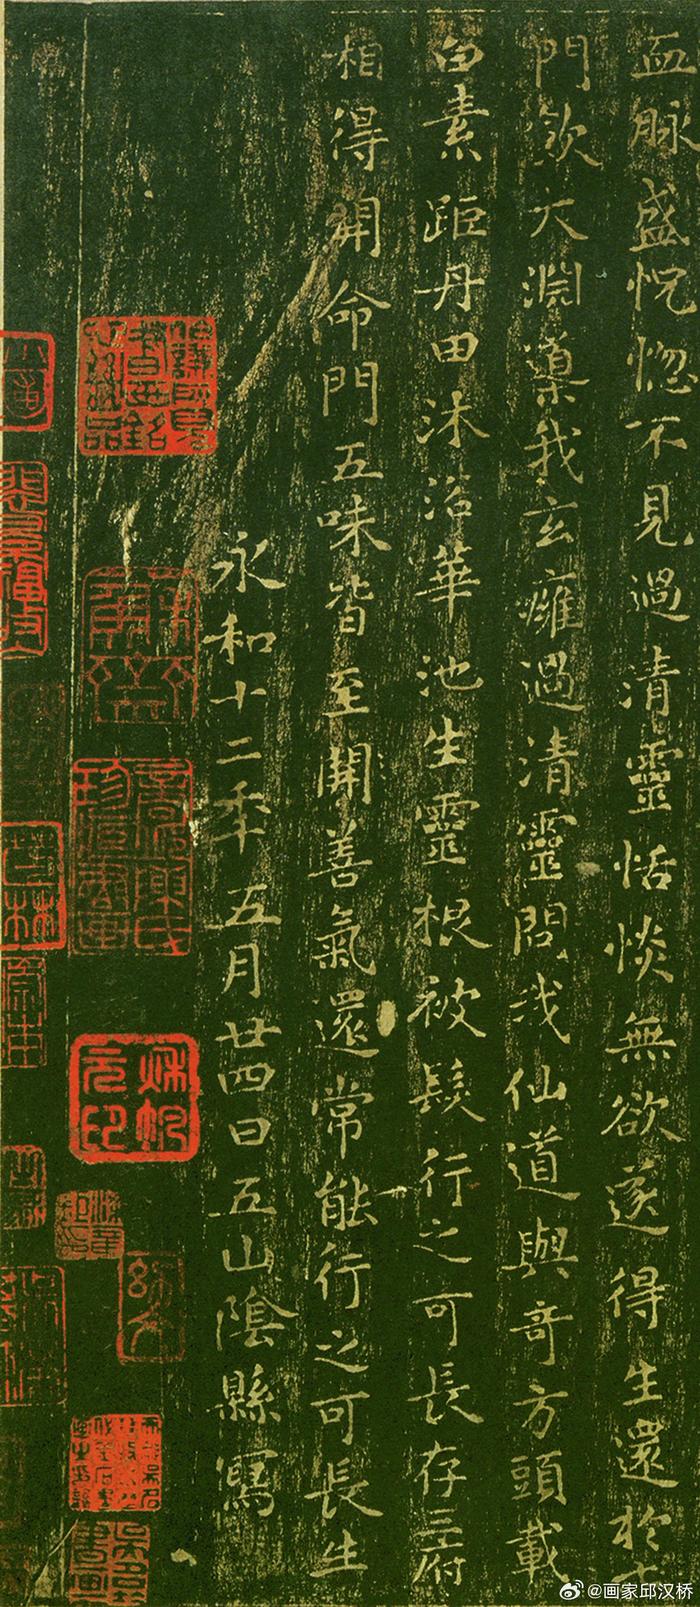 血脉盛恍惚不見過清靈恬惔無欲遂得生還於七
門飲大淵導我玄癕過清靈問我仙道與奇方頭載
白素距丹田沐浴華池生靈根被髮行之可長存三府
相得開命門五味皆至開善氣還常能行之可長生
永和十二年五月廿四日五山陰縣寫
@画家邱汉桥